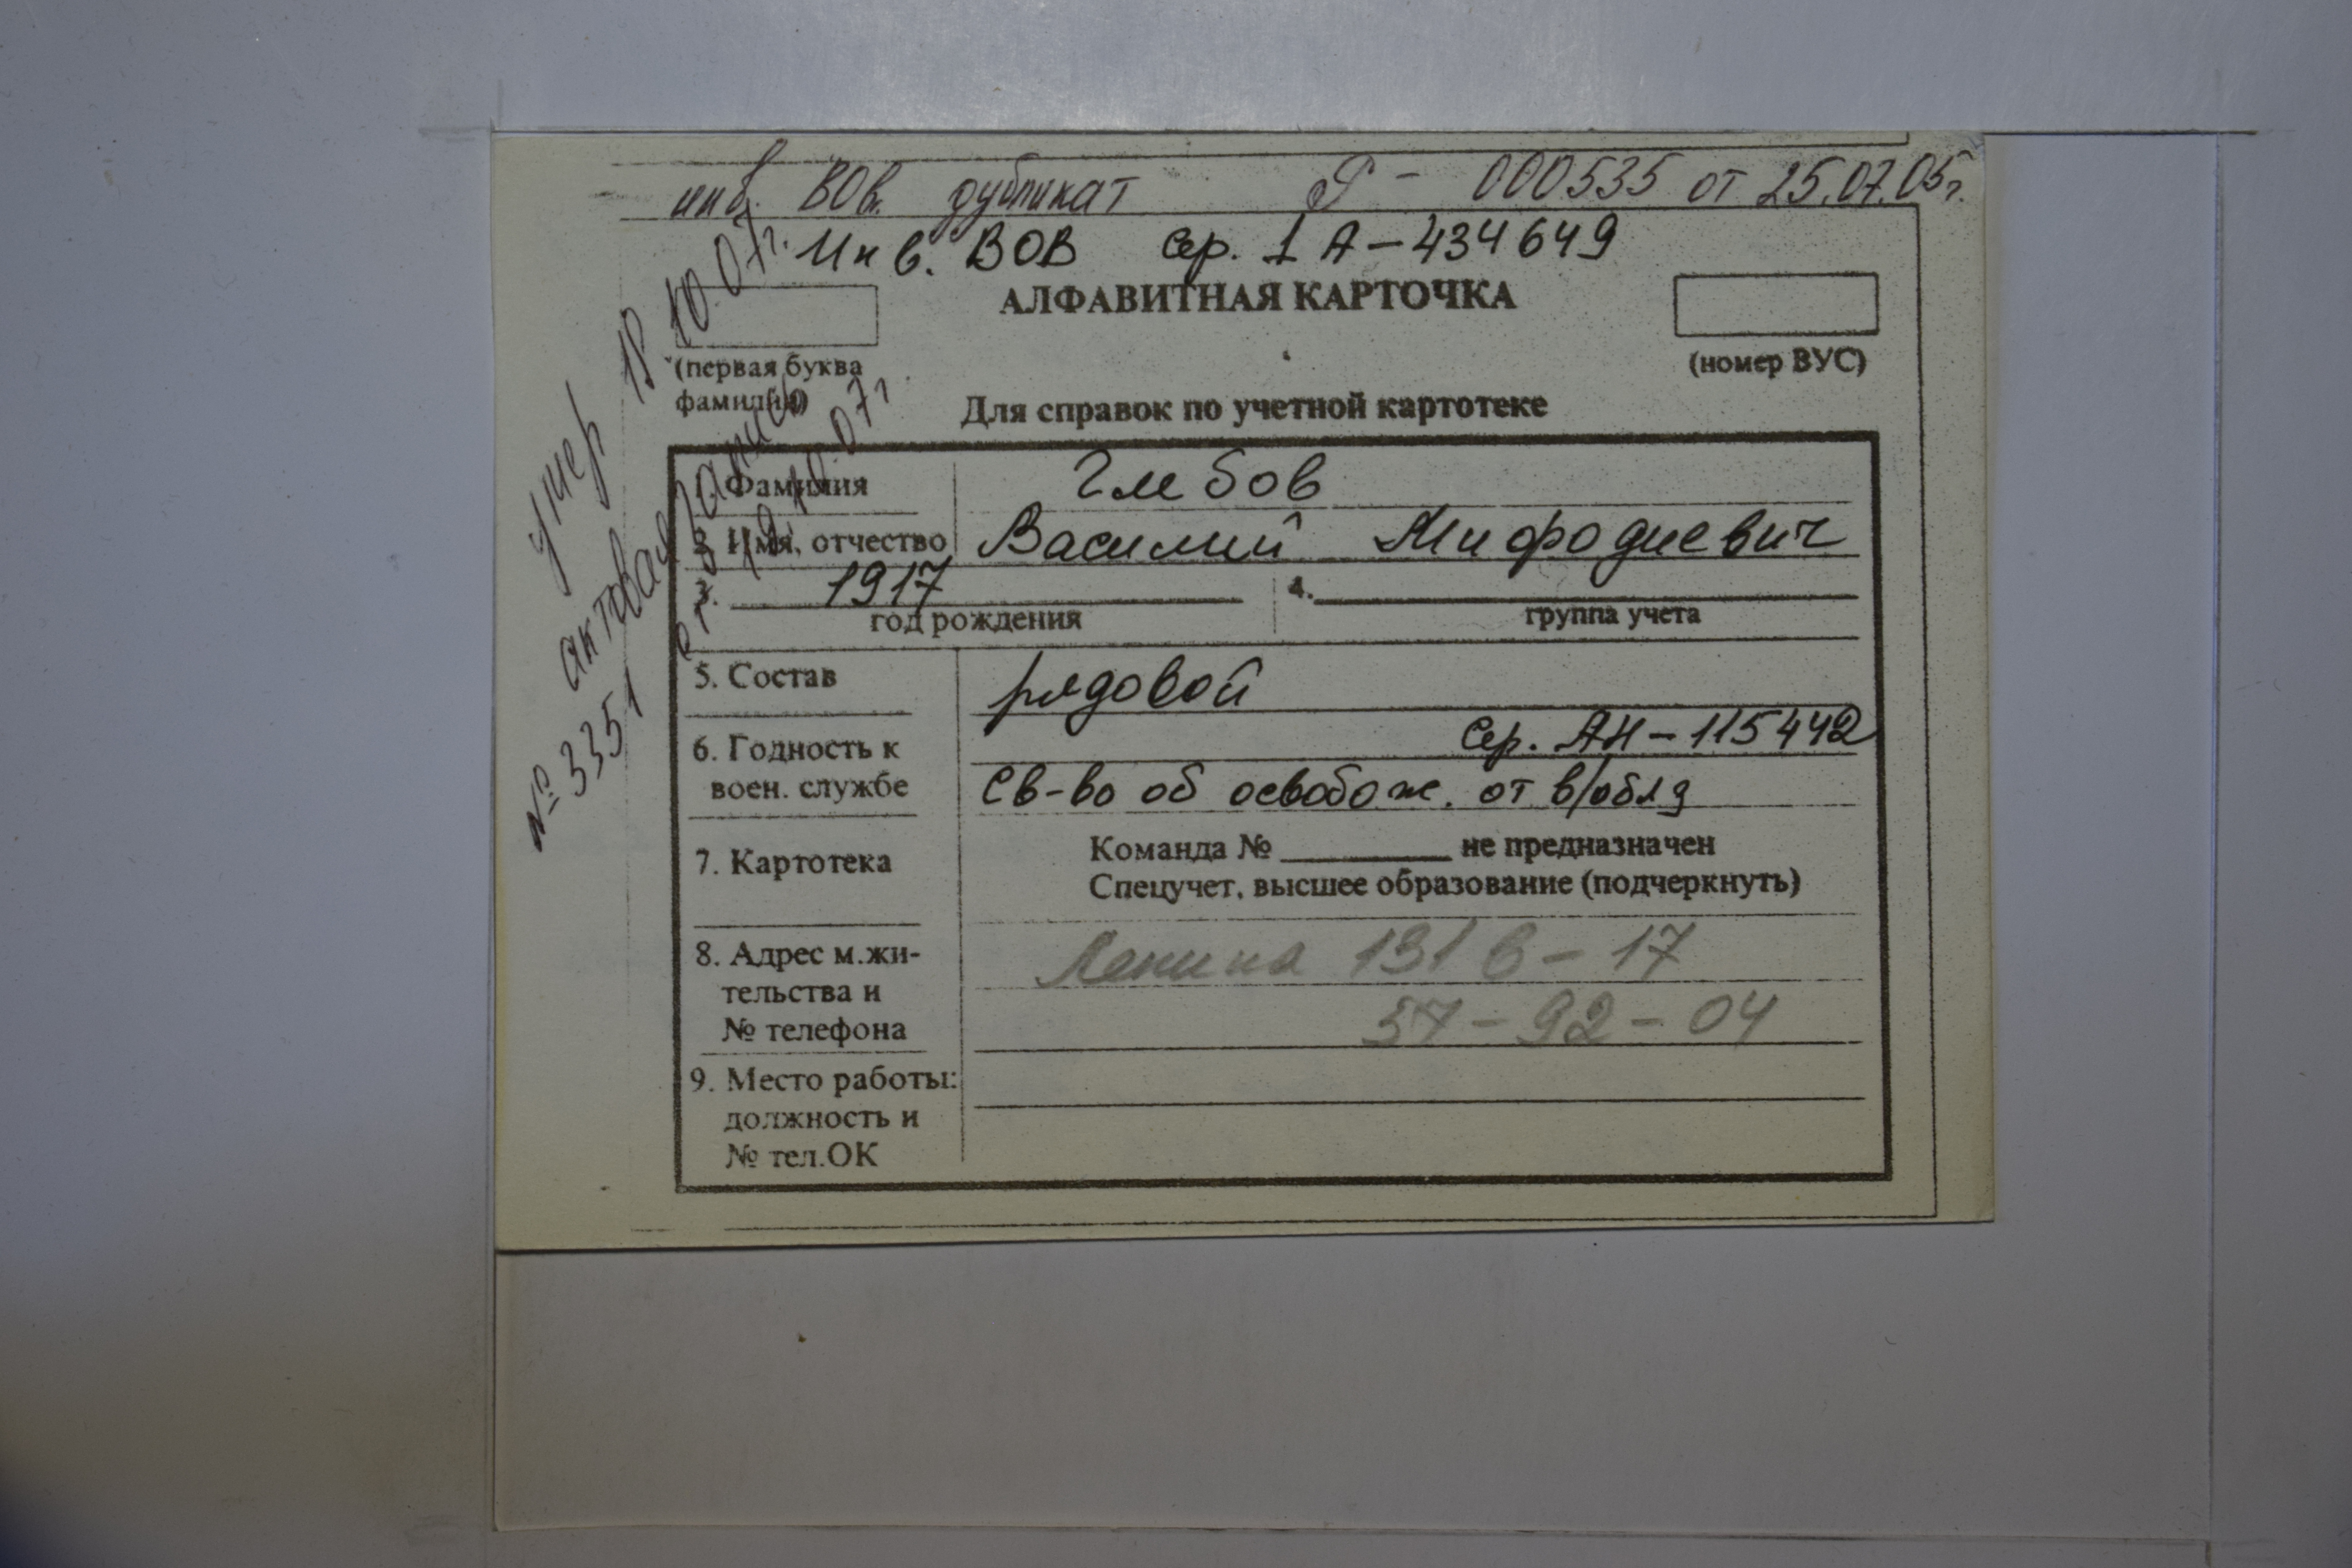 инв. ВОв. дубликат Р - 000535 от 25.07.05г.
Инв. ВОВ сер. 1 А - 434649
АЛФАВИТНАЯ КАРТОЧКА
(первая буква
фамилии)
(номер ВУС)
Для справок по учетной картотеке
умер 18.10.07г.
актовая запись
№ 3351 от 19.10.07г
1. Фамилия Глебов
2. Имя, отчество Василий Мифодиевич
3. 1917 4.
год рождения группа учета
5. Состав рядовой
сер. АН - 115442
6. Годность к
воен. службе Св-во об освобож. от в/обяз
7. Картотека
Команда № не предназначен
Спецучет, высшее образование (подчеркнуть)
8. Адрес м.жи-
тельства и
№ телефона
Ленина 131 в - 17
57 - 92 - 04
9. Место работы:
должность и
№ тел.ОК